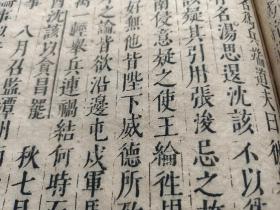 湯思退沈該不以
疑其引用張浚忌之故
南侵意疑之使王綸徃
好無他皆陛下威德所
之論皆欲沿邊屯戍軍馬
萬一釁兵連禍結何時
沈該以貪冒罷
八月召 潭州
秋七月